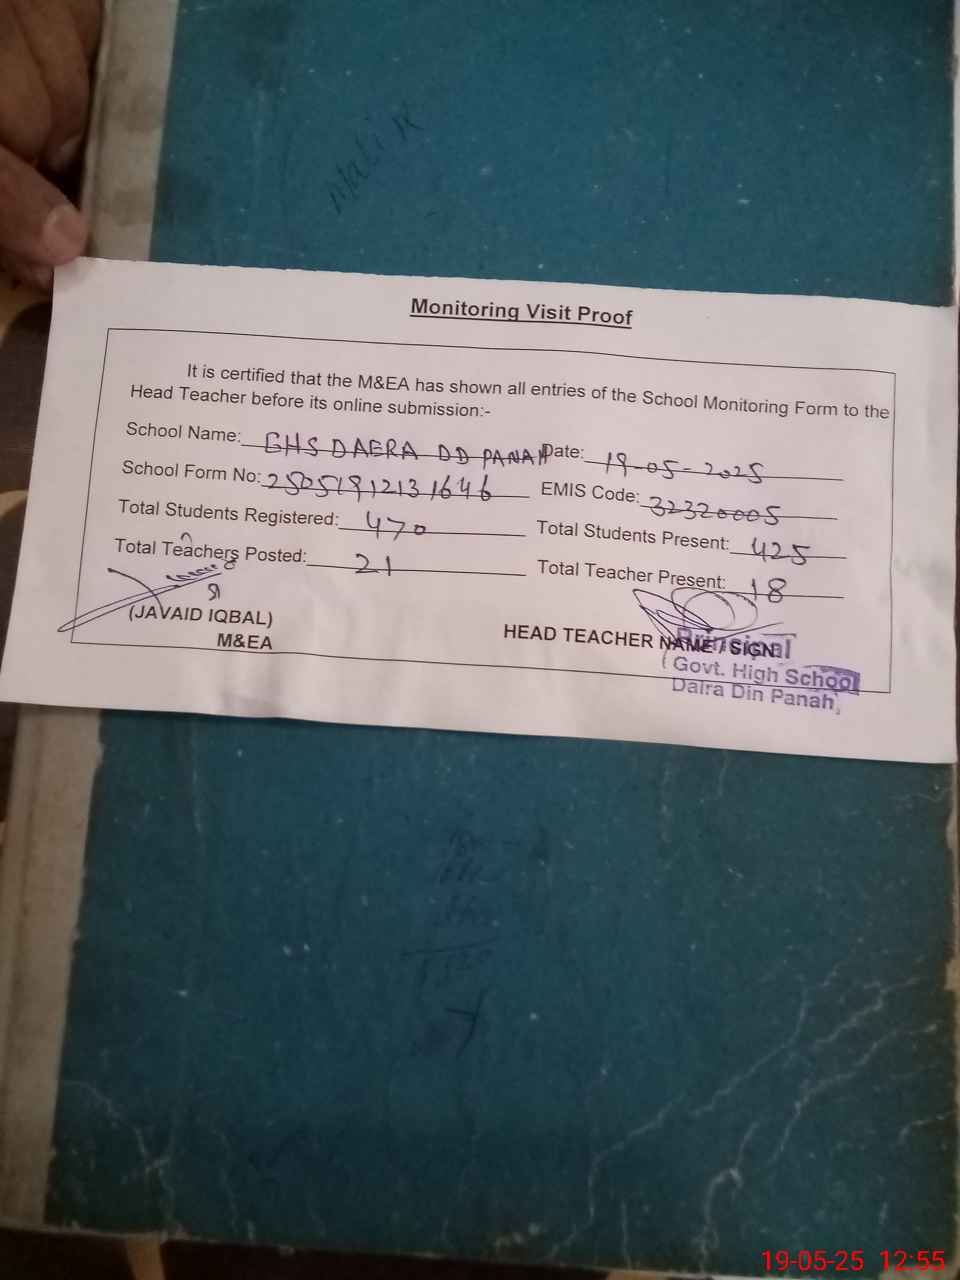 Malik
Monitoring Visit Proof
It is certified that the M&EA has shown all entries of the School Monitoring Form to the
Head Teacher before its online submission:-
School Name: GHS DAERA DD PANAH Date: 19-05-2025
School Form No: 2505191213 1646 EMIS Code: 32320005
Total Students Registered: 470 Total Students Present: 425
Total Teachers Posted: 21 Total Teacher Present: 18
(JAVAID IQBAL)
M&EA
HEAD TEACHER NAME / SIGN:
Principal
Govt. High School
Daira Din Panah,
19-05-25 12:55